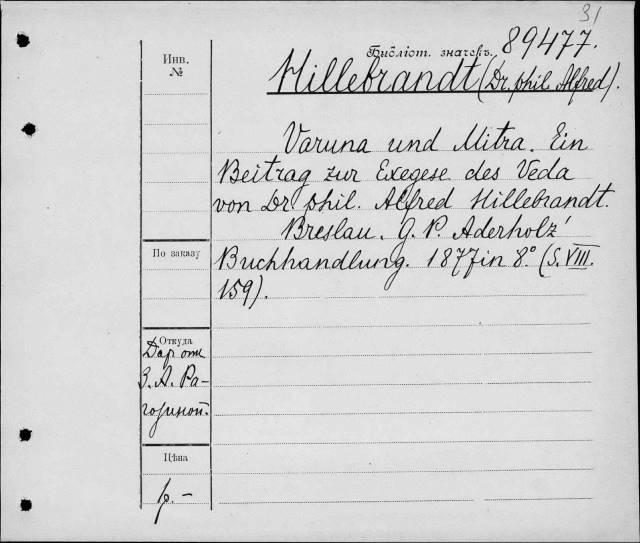 31
Библіот. значекъ. 89477.
Инв.
№
Hillebrandt (Dr. phil. Alfred).
Varuna und Mitra. Ein
Beitrag zur Exegese des Veda
von Dr. phil. Alfred Hillebrandt.
Breslau. G. P. Aderholz'
Buchhandlung. 1877 in 8.° (S. VIII.
159).
По заказу
Откуда
Дар от
З. А. Ра-
гозиной.
Цѣна
р. –